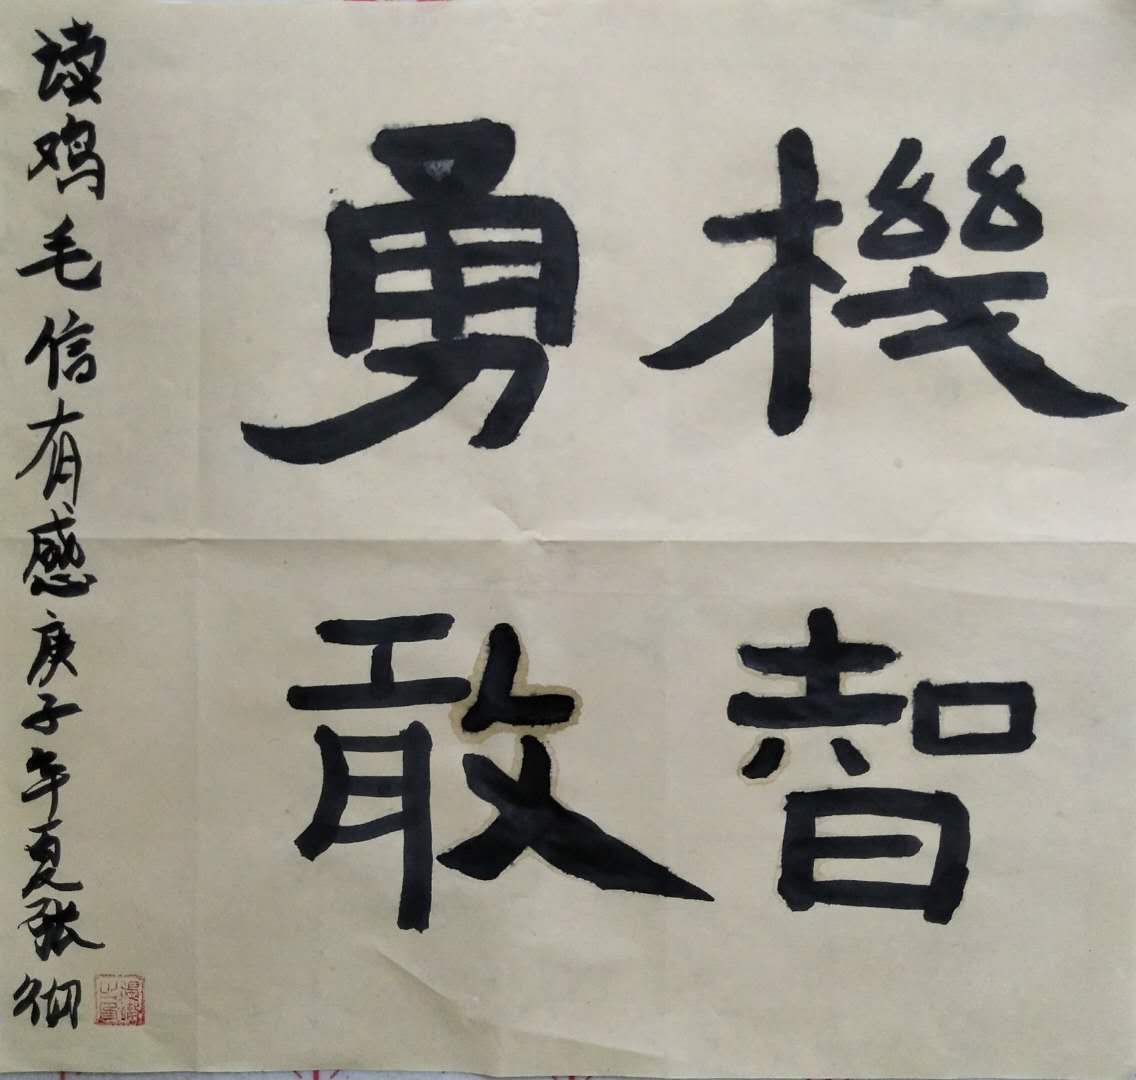 機智
勇敢
读鸡毛信有感庚子年夏张